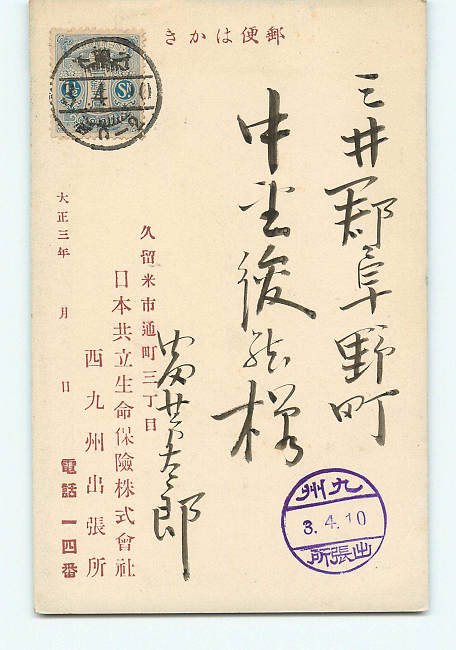 郵便はかき
三井郡阜野町
中
様
久留米市通町三丁目
日本共立生命保險株式會社
西九州出張所
電話一四番
大正三年 月 日
太郎
九州
3.4.10
出張所